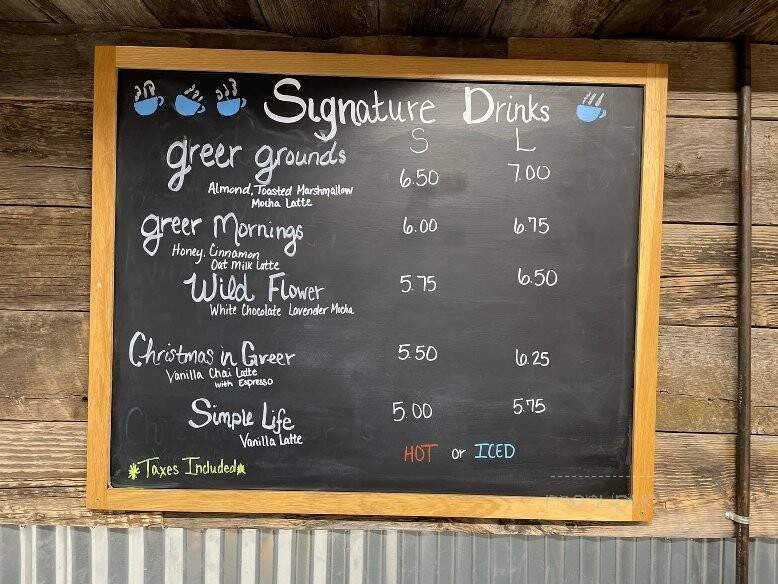 Signature Drinks
S L
greer grounds 6.50 7.00
Almond, Toasted Marshmallow
Mocha Latte
greer Mornings 6.00 6.75
Honey, Cinnamon
Oat Milk Latte
Wild Flower 5.75 6.50
White Chocolate Lavender Mocha
Christmas in Greer 5.50 6.25
Vanilla Chai Latte
with Espresso
Simple Life 5.00 5.75
Vanilla Latte
HOT or ICED
*Taxes Included*